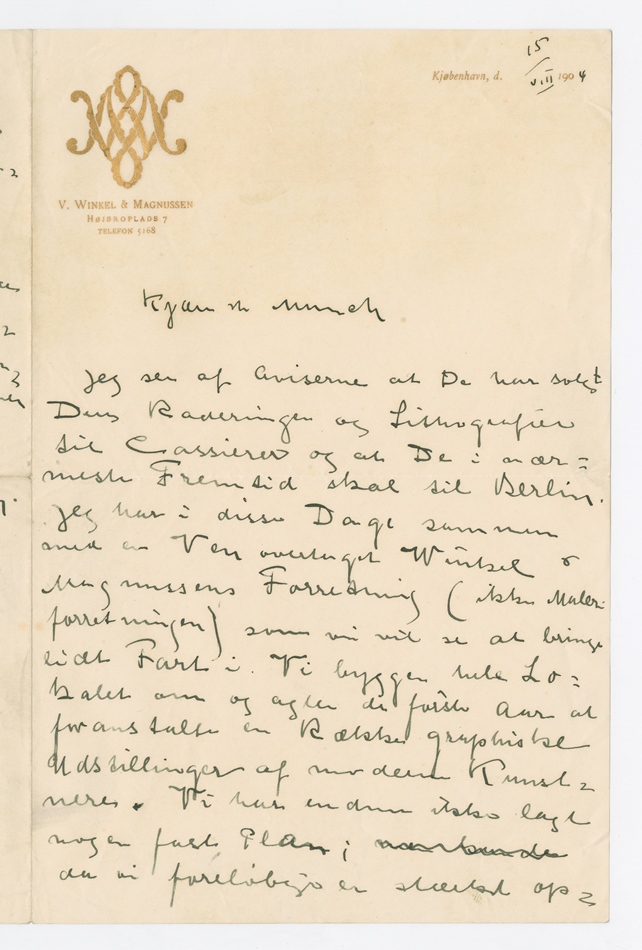 15
Kjøbenhavn, d. VIII 1904
V. WINKEL & MAGNUSSEN
HØIBROPLADS 7
TELEFON 5168
Kjære Munch
Jeg ser af Aviserne at De har solgt
Deres Raderinger og Lithografier
til Cassierer og at De i nær=
meste Fremtid skal til Berlin.
Jeg har i disse Dage sammen
med en Ven overtaget Winkel &
Magnussens Forretning (ikke Maler-
forretningen) som vi vil se at bringe
lidt Fart i. Vi bygger hele Lo=
kalet om og agter de første Aar at
foranstalte en Række graphiske
Udstillinger af moderne Kunst=
nere. Vi har endnu ikke lagt
nogen fast Plan;
da vi foreløbig er stærkt op=